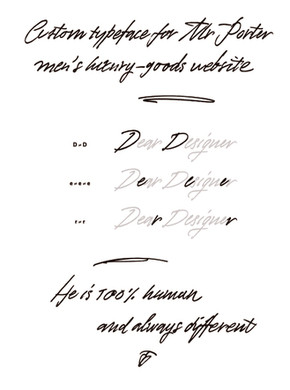 Custom typeface for Mr Porter
men's luxury-goods website
D≠D Dear Designer
e≠e≠e Dear Designer
r≠r Dear Designer
He is 100% human
and always different